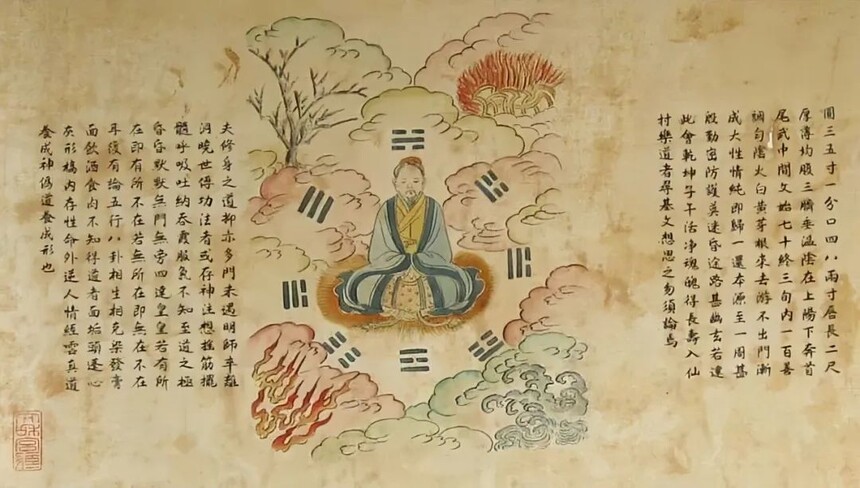 圓三五寸一分口四八兩寸唇長二尺
厚薄均腹三臍垂溫陰在上陽下奔首
尾武中間文始七十終三旬內一百善
調勻陰火白黃芽根來去游不出門漸
成大性情純即歸一還本源至一周甚
殷勤密防護莫迷昏途路甚幽玄若達
此會乾坤子午沾淨魂魄得長壽入仙
村樂道者尋基文想思之勿須論焉
夫修身之道抑亦多門未遇明師卒難
洞曉世傳功法者或存神注想捻筋擺
髓呼吸吐納吞霞服氣不知至道之極
昏昏默默無門無旁四達皇皇若有所
在即有所不在若無所在即無在不在
耳復有論五行八卦相生相克染發膏
面飲酒食肉不知得道者面垢頭蓬心
灰形槁內存性命外逆人情經雲真道
養成神偽道養成形也